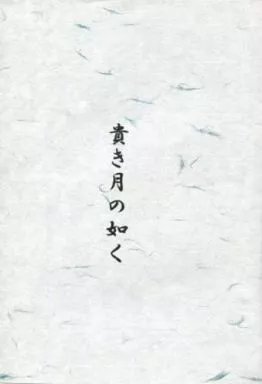 貴き月の如く